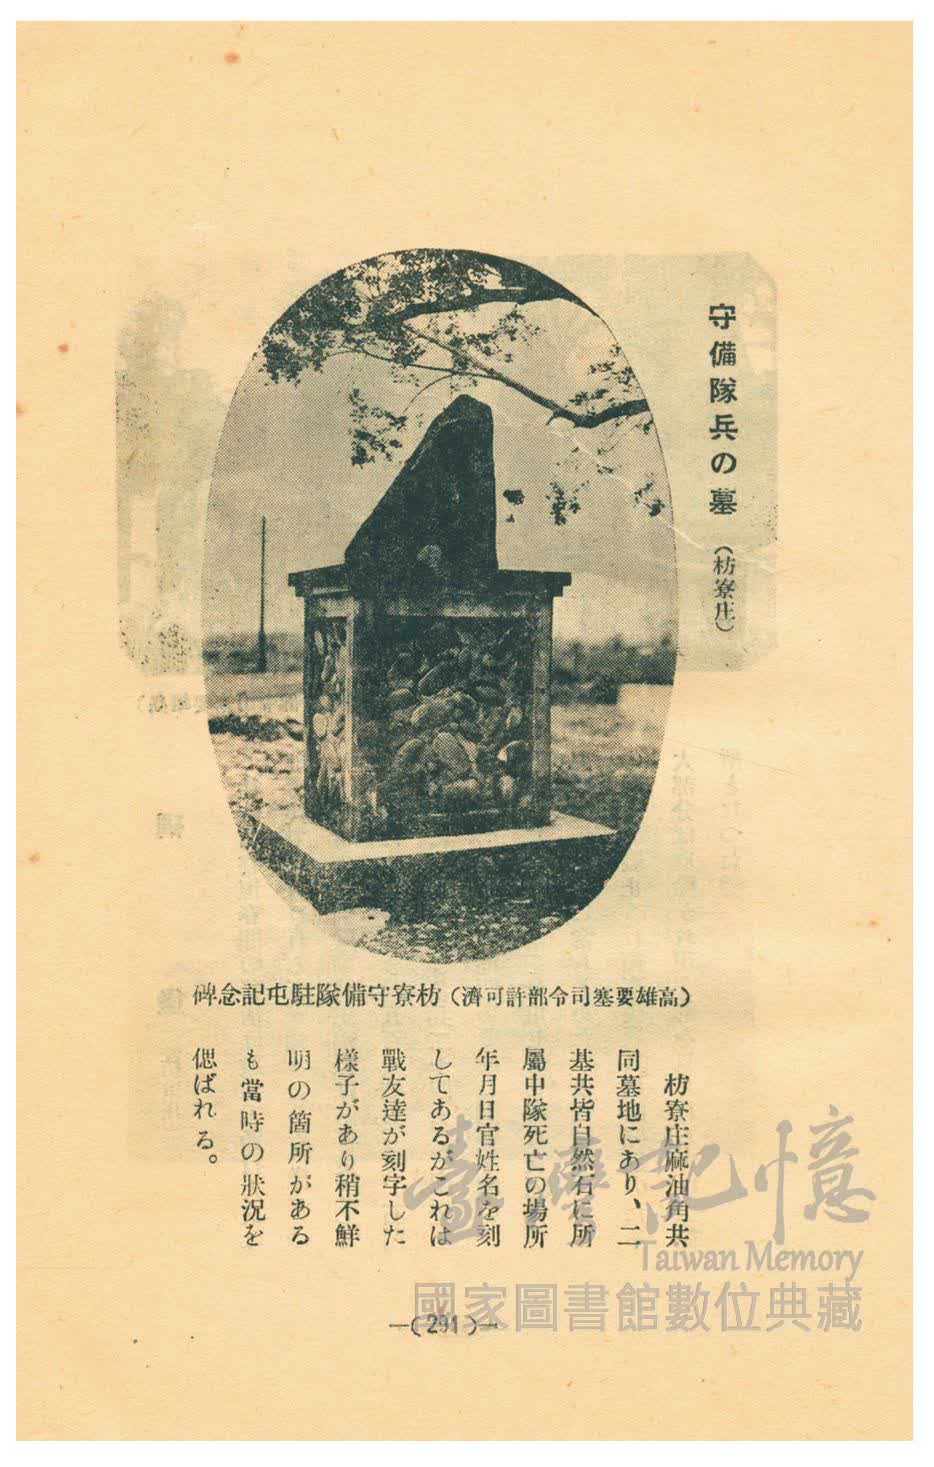 守備隊兵の墓 (枋寮庄)
枋寮守備隊駐屯記念碑 (高雄要塞司令部許可濟)
枋寮庄麻油角共
同墓地にあり、二
基共皆自然石に所
屬中隊死亡の場所
年月日官姓名を刻
してあるがこれは
戰友達が刻字した
樣子があり稍不鮮
明の箇所がある
も當時の狀況を
偲ばれる。
—(291)—
臺灣記憶
Taiwan Memory
國家圖書館數位典藏